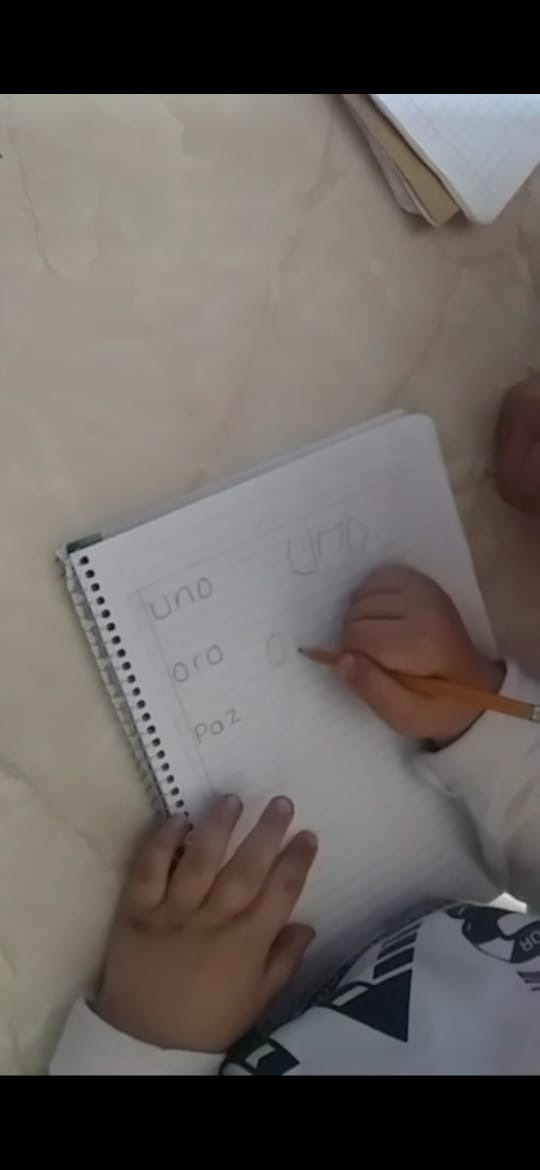 uno uno
oro o
paz
OR